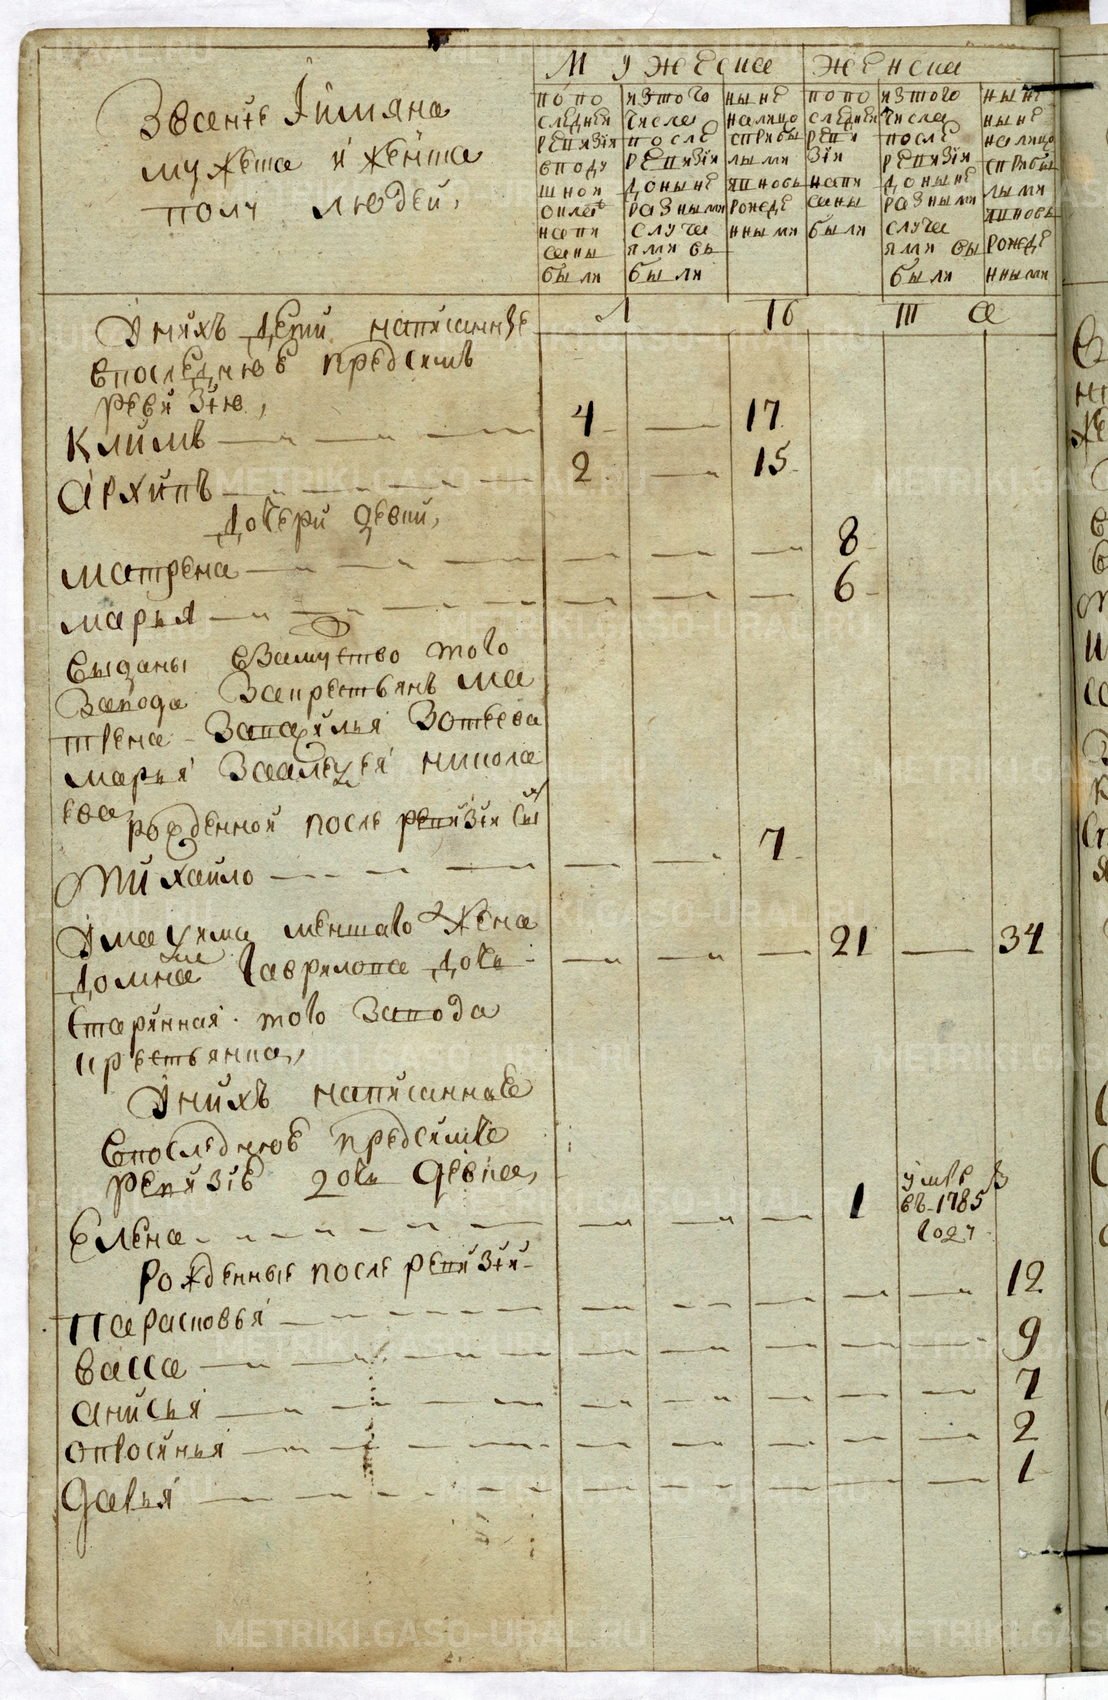 Званiе Iимяна
мужеска и женска
полу людей,
Мужеска
женска
попо
следней
ревизiи
вподу
шной
окладъ
напи
саны
были
изтого
числа
после
ревизiи
доныне
разными
случа
ями вы
были
ныне
налицо
сприбы
лыми
иновь
рожде
нными
попо
следней
реви
зiи
напи
саны
были
изтого
числа
после
ревизiи
доныне
разными
случа
ями вы
были
ныне
налицо
сприбы
лыми
иновь
рожде
нными
Л
Iб
Ш
а
Унихъ дети написанные
впоследнюю предсимъ
ревизiю,
Климъ 4 17
Архипъ 2 15
дочери девки,
Матрена 8
Марья 6
выданы взамуство того
завода закрестьянъ ма
трена - Зотьева
марья никола
ева
рожденной после ревизiи сынъ
Михайло 7
Умаксима меншаго жена
домна гаврилова дочь 21 34
старинная того завода
крестьянка,
Унихъ написанная
впоследнюю предсимъ
ревизiю дочь девка,
Елена 1 умре въ 1785 году
Рожденные после ревизiи
Парасковья 12
Васса 9
Анисья 7
Офросинья 2
Дарья 1
METRIKI.GASO-URAL.RU